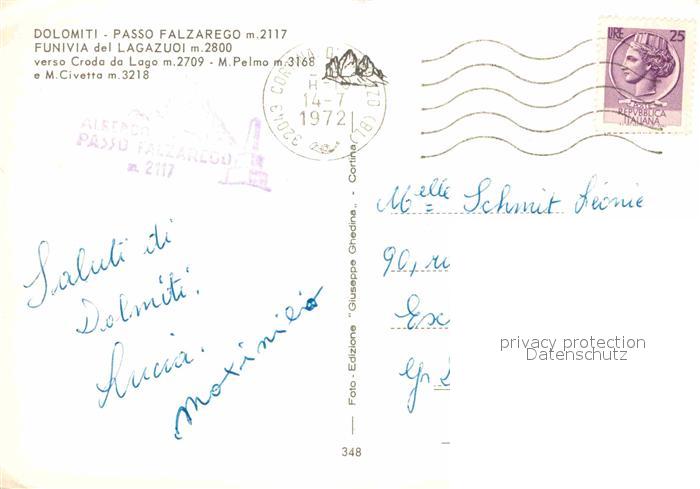 DOLOMITI - PASSO FALZAREGO m.2117
FUNIVIA del LAGAZUOI m.2800
verso Croda da Lago m.2709 - M.Pelmo m.3168
e M.Civetta m.3218
ALBERGO
PASSO FALZAREGO
m. 2117
32043 CORTINA D' ZZO (BL)
14-7
1972
LIRE 25
REPVBBLICA
ITALIANA
Saluti di
Dolmiti.
Lucia.
Melle Schmit Léonie
90, ru
Esc
Foto - Edizione "Giuseppe Ghedina" - Cortina
348
privacy protection
Datenschutz